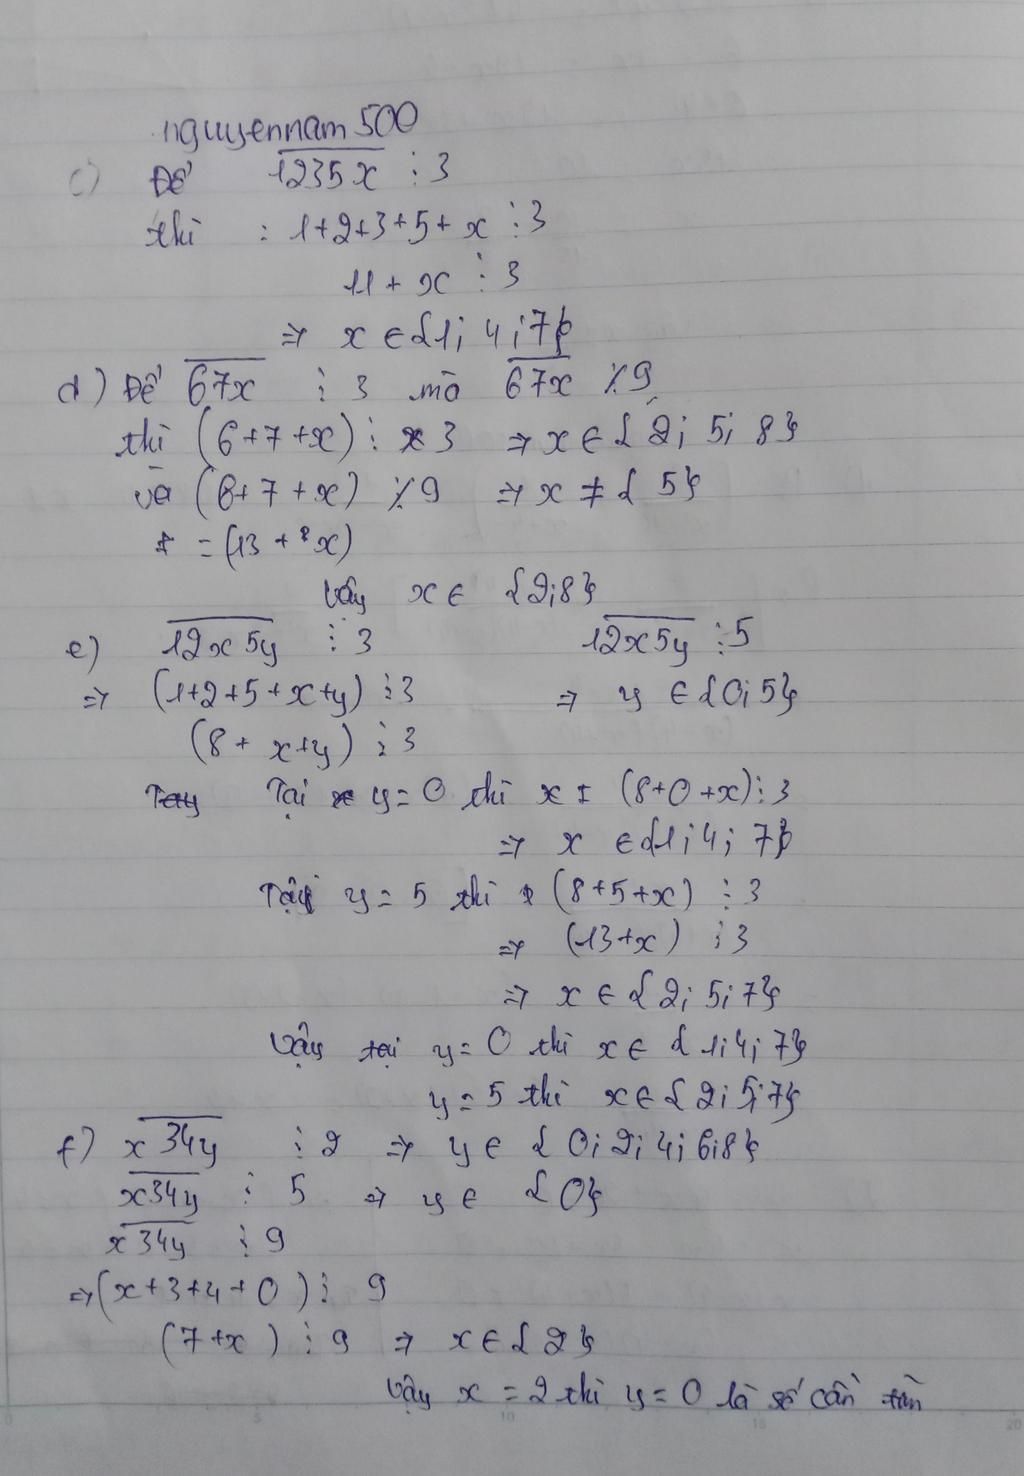 nguyennam 500
c) Để 1235x ⋮ 3
thì : 1+2+3+5+x ⋮ 3
11 + x ⋮ 3
⇒ x ∈ {1; 4; 7}
d) Để 67x ⋮ 3 mà 67x ⋮̸ 9
thì (6+7+x) ⋮ 3 ⇒ x ∈ {2; 5; 8}
và (6+7+x) ⋮̸ 9 ⇒ x ≠ {5}
= (13 + x)
Vậy x ∈ {2;8}
e) 12x5y ⋮ 3 12x5y ⋮ 5
⇒ (1+2+5+x+y) ⋮ 3 ⇒ y ∈ {0; 5}
(8 + x+y) ⋮ 3
Tại y = 0 thì x (8+0+x) ⋮ 3
⇒ x ∈ {1; 4; 7}
Tại y = 5 thì (8+5+x) ⋮ 3
⇒ (13+x) ⋮ 3
⇒ x ∈ {2; 5; 7}
Vậy tại y = 0 thì x ∈ {1; 4; 7}
y = 5 thì x ∈ {2; 5; 7}
f) x34y ⋮ 2 ⇒ y ∈ {0; 2; 4; 6; 8}
x34y ⋮ 5 ⇒ y ∈ {0}
x34y ⋮ 9
⇒ (x+3+4+0) ⋮ 9
(7+x) ⋮ 9 ⇒ x ∈ {2}
Vậy x = 2 thì y = 0 là số cần tìm